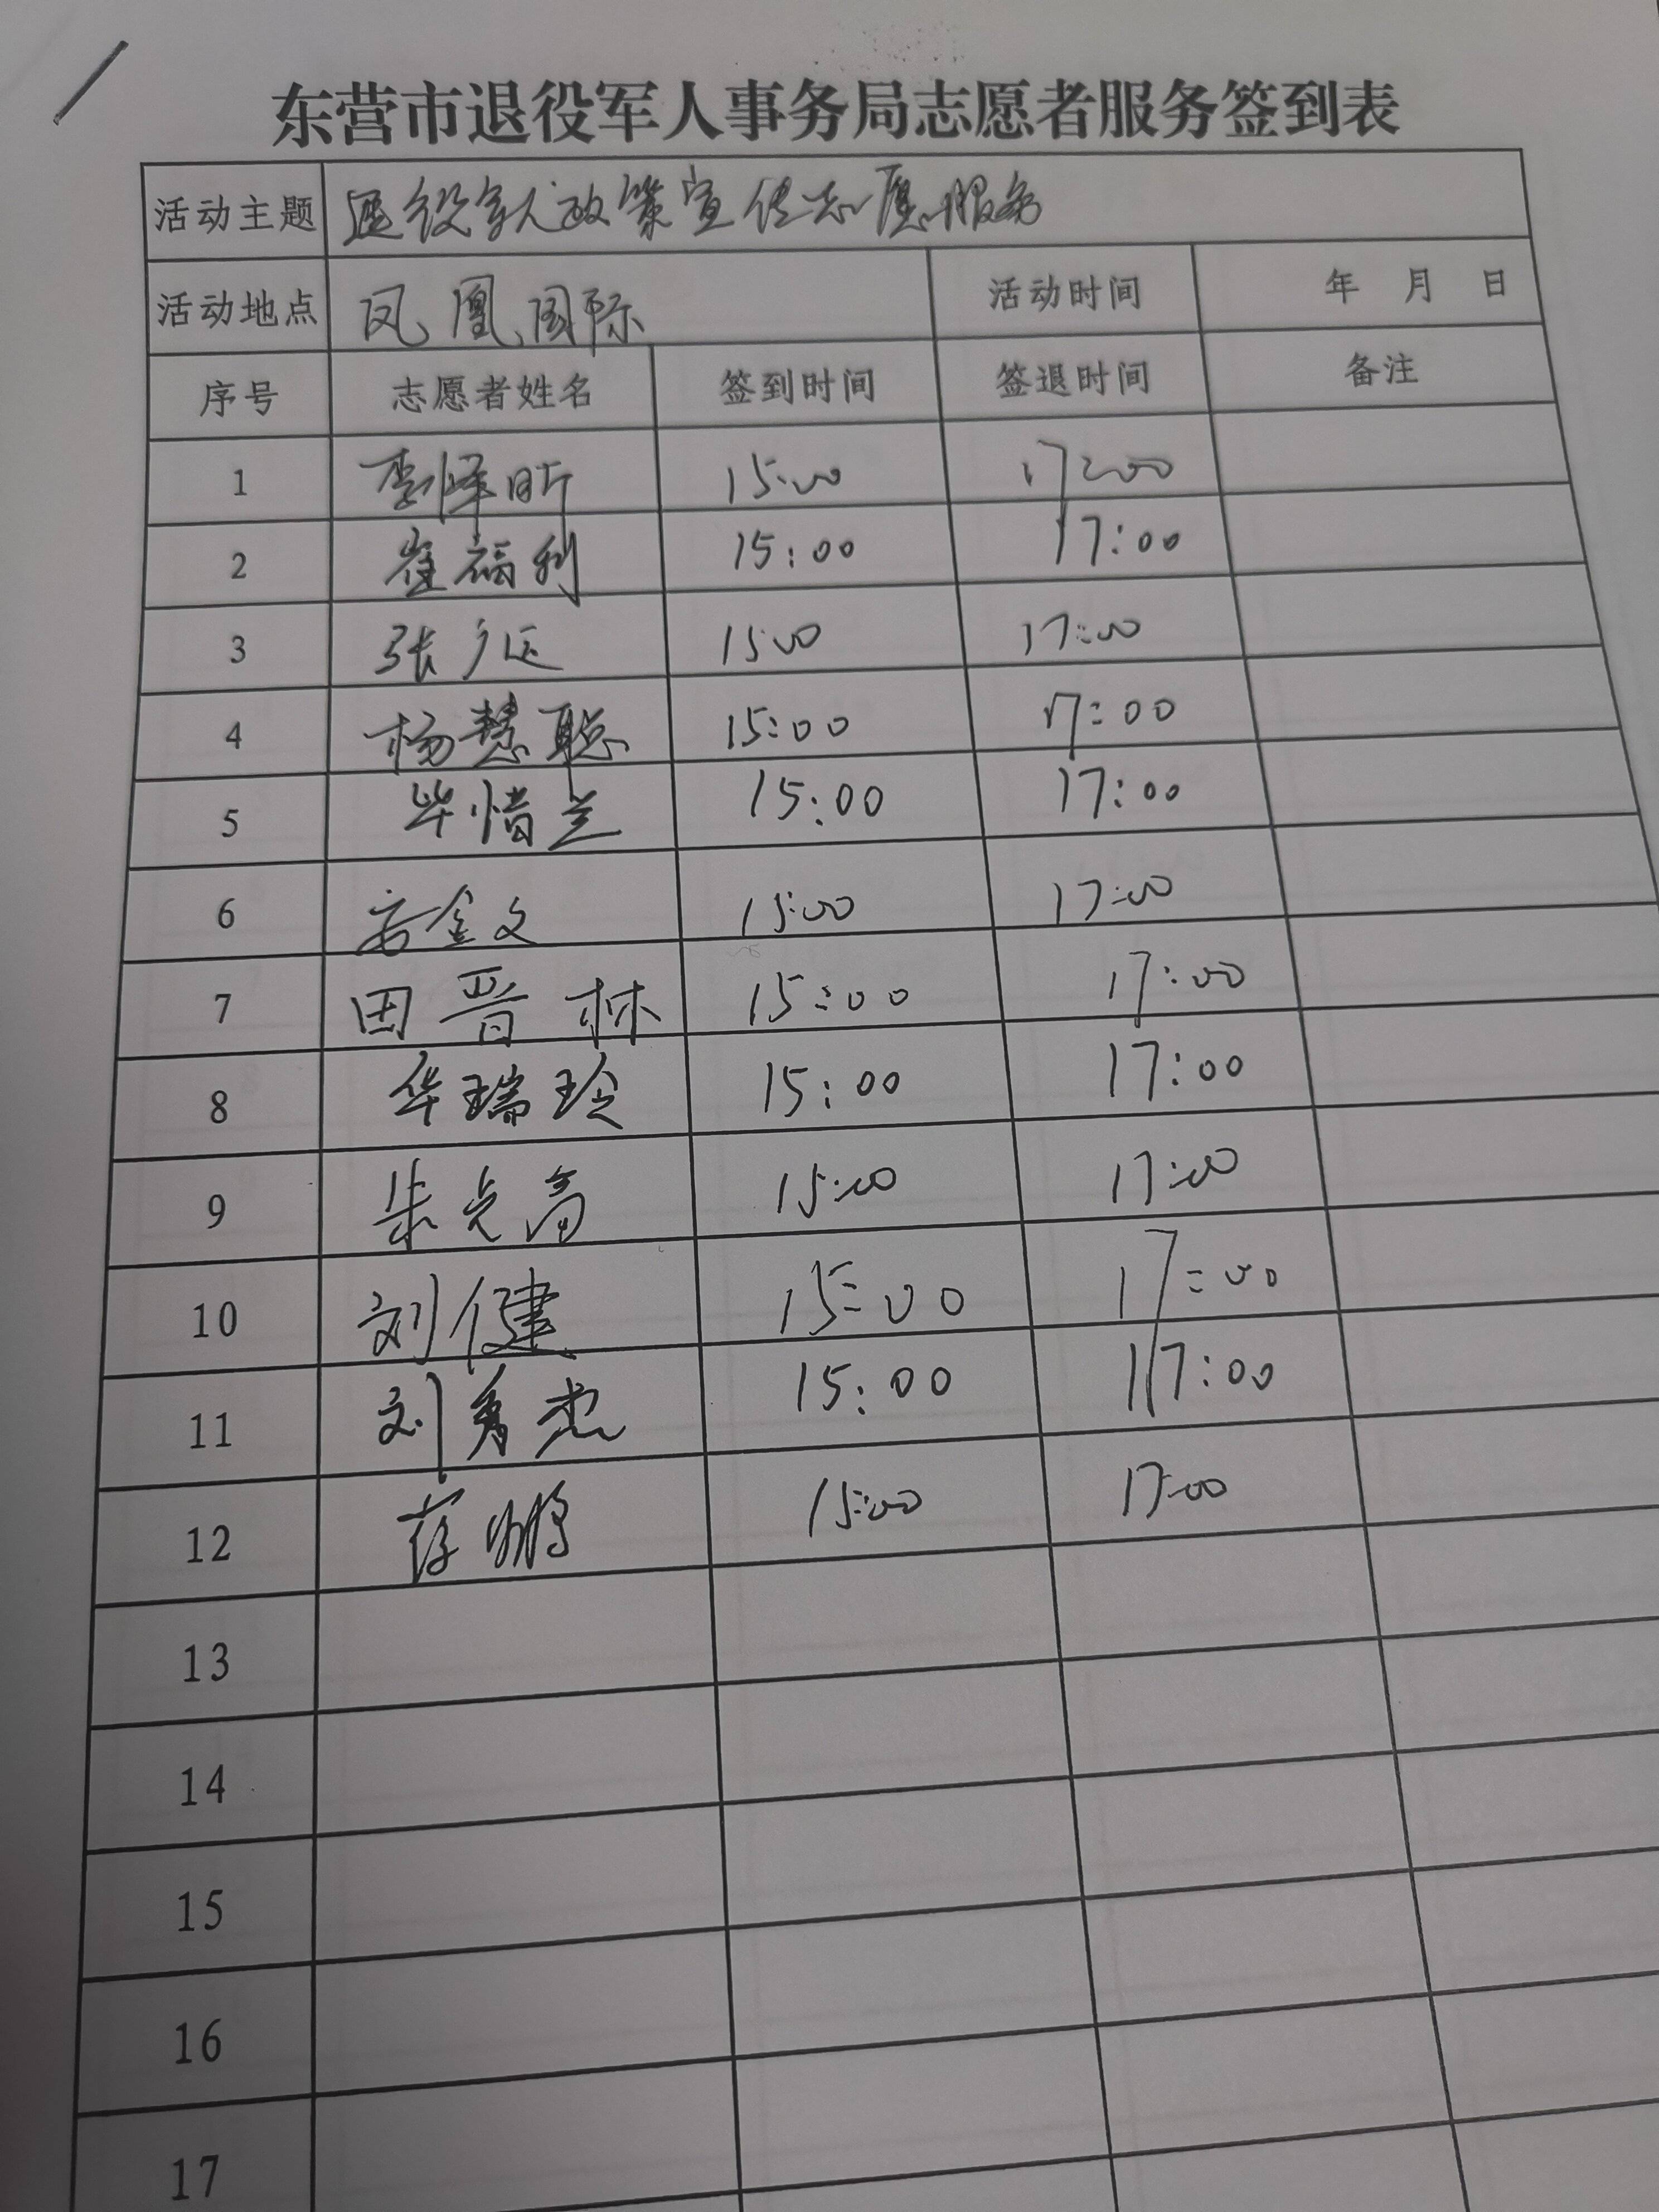 东营市退役军人事务局志愿者服务签到表
活动主题 退役军人政策宣传志愿服务
活动地点 凤凰国际 活动时间 年 月 日
序号 志愿者姓名 签到时间 签退时间 备注
1 李泽昕 15:00 17:00
2 崔福利 15:00 17:00
3 张广延 15:00 17:00
4 杨慧聪 15:00 17:00
5 毕惜兰 15:00 17:00
6 金文 15:00 17:00
7 田晋林 15:00 17:00
8 华瑞玲 15:00 17:00
9 朱光高 15:00 17:00
10 刘健 15:00 17:00
11 刘秀杰 15:00 17:00
12 薛鹏 15:00 17:00
13
14
15
16
17